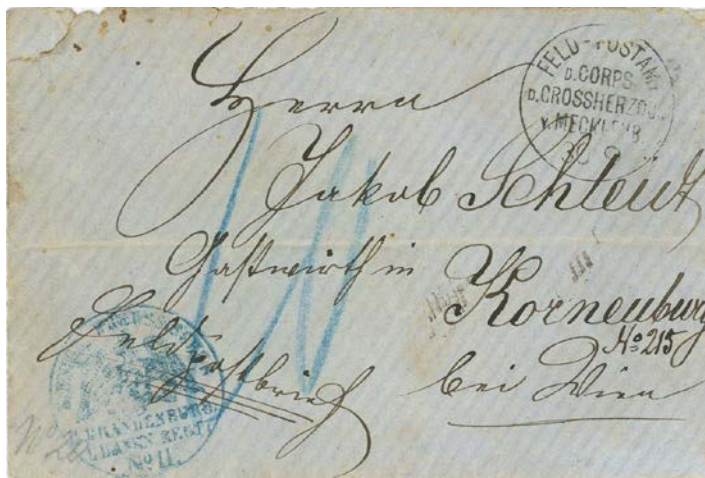 FELD-POSTAMT
D.CORPS
D.GROSSHERZOG
V.MECKLENB.
30 9
Herrn
Jakob Schleut
Gastwirth in
Korneuburg
No 215
bei Wien
Feldpostbrief
10
BRANDENBURG
ULANEN REGT
No 11.